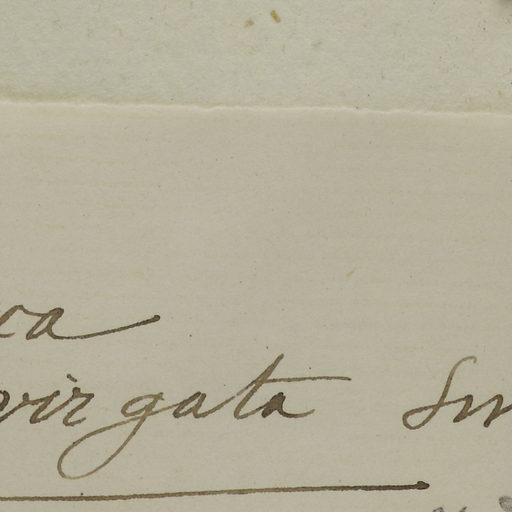 ca
virgata Sm